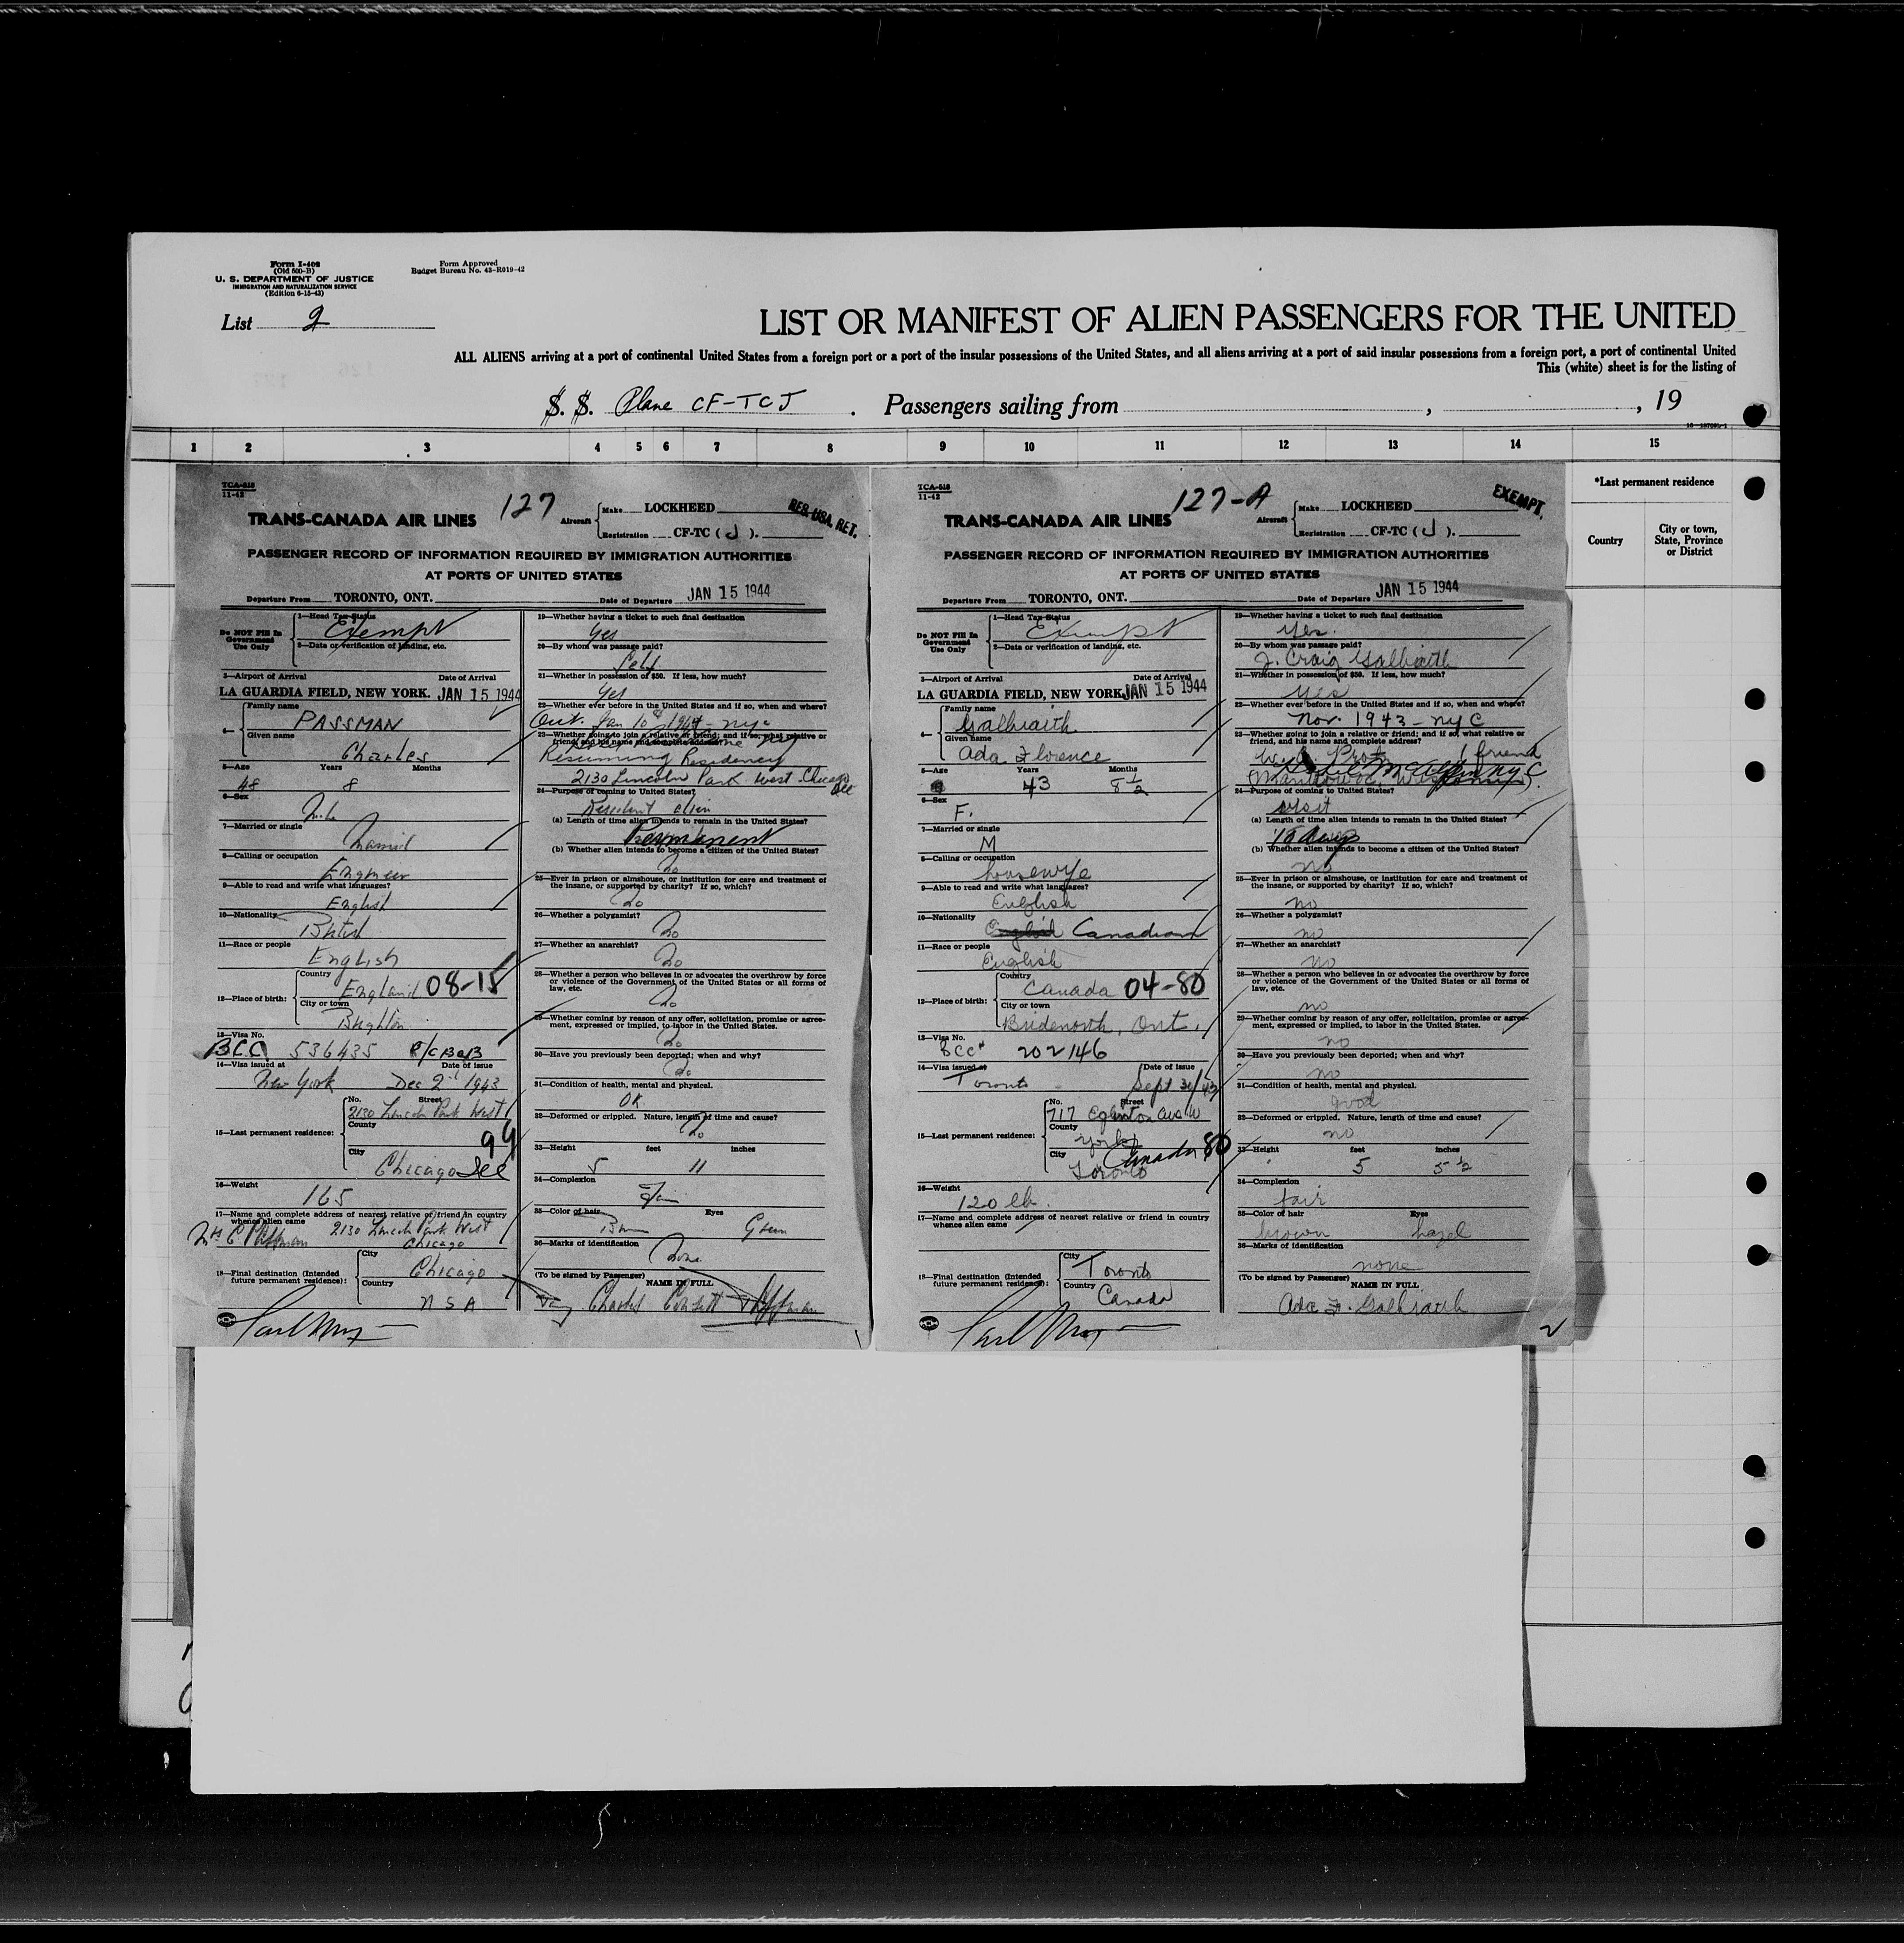 Form I-402
(Old 500-B)
U. S. DEPARTMENT OF JUSTICE
IMMIGRATION AND NATURALIZATION SERVICE
(Edition 6-15-43)
Form Approved
Budget Bureau No. 43-R019-42
List 2
LIST OR MANIFEST OF ALIEN PASSENGERS FOR THE UNITED
ALL ALIENS arriving at a port of continental United States from a foreign port or a port of the insular possessions of the United States, and all aliens arriving at a port of said insular possessions from a foreign port, a port of continental United
This (white) sheet is for the listing of
S. S. Plane CF-TCJ . Passengers sailing from , , 19
1 2 3 4 5 6 7 8 9 10 11 12 13 14 15
*Last permanent residence
Country
City or town, State, Province or District
TCA-518
11-42
127
TRANS-CANADA AIR LINES
Aircraft
Make LOCKHEED
Registration CF-TC ( J ).
RES USA RET.
PASSENGER RECORD OF INFORMATION REQUIRED BY IMMIGRATION AUTHORITIES
AT PORTS OF UNITED STATES
Departure From TORONTO, ONT. Date of Departure JAN 15 1944
Do NOT Fill In Government Use Only
1—Head Tax Status
Exempt
2—Data or verification of landing, etc.
3—Airport of Arrival Date of Arrival
LA GUARDIA FIELD, NEW YORK. JAN 15 1944
4—
Family name
PASSMAN
Given name
Charles
5—Age Years Months
48 8
6—Sex
7—Married or single
Married
8—Calling or occupation
Engineer
9—Able to read and write what languages?
English
10—Nationality
British
11—Race or people
English
12—Place of birth:
Country
England 08-15
City or town
Brighton
13—Visa No.
BCC 536435
14—Visa issued at Date of issue
New York Dec 2nd 1943
15—Last permanent residence:
No. Street
2130 Lincoln Park West
County
99
City
Chicago Ill
16—Weight
165
17—Name and complete address of nearest relative or friend in country whence alien came
2130 Lincoln Park West
Chicago
18—Final destination (Intended future permanent residence):
City
Chicago
Country
USA
19—Whether having a ticket to such final destination
Yes
20—By whom was passage paid?
Self
21—Whether in possession of $50. If less, how much?
Yes
22—Whether ever before in the United States and if so, when and where?
Out. Jan 10th 1944 - nyc
23—Whether going to join a relative or friend; and if so, what relative or friend, and his name and complete address?
Resuming Residency
2130 Lincoln Park West Chicago
Ill
24—Purpose of coming to United States?
Resident alien
(a) Length of time alien intends to remain in the United States?
Permanent
(b) Whether alien intends to become a citizen of the United States?
No
25—Ever in prison or almshouse, or institution for care and treatment of the insane, or supported by charity? If so, which?
No
26—Whether a polygamist?
No
27—Whether an anarchist?
No
28—Whether a person who believes in or advocates the overthrow by force or violence of the Government of the United States or all forms of law, etc.
No
29—Whether coming by reason of any offer, solicitation, promise or agreement, expressed or implied, to labor in the United States.
No
30—Have you previously been deported; when and why?
No
31—Condition of health, mental and physical.
OK
32—Deformed or crippled. Nature, length of time and cause?
No
33—Height feet inches
5 11
34—Complexion
35—Color of hair Eyes
Brn Green
36—Marks of identification
None
(To be signed by Passenger) NAME IN FULL
Charles
TCA-518
11-42
127-A
TRANS-CANADA AIR LINES
Aircraft
Make LOCKHEED
Registration CF-TC ( J ).
EXEMPT.
PASSENGER RECORD OF INFORMATION REQUIRED BY IMMIGRATION AUTHORITIES
AT PORTS OF UNITED STATES
Departure From TORONTO, ONT. Date of Departure JAN 15 1944
Do NOT Fill In Government Use Only
1—Head Tax Status
Exempt
2—Data or verification of landing, etc.
3—Airport of Arrival Date of Arrival
LA GUARDIA FIELD, NEW YORK. JAN 15 1944
4—
Family name
Galbraith
Given name
Ada Florence
5—Age Years Months
43 8 1/2
6—Sex
F.
7—Married or single
M
8—Calling or occupation
housewife
9—Able to read and write what languages?
English
10—Nationality
English Canadian
11—Race or people
English
12—Place of birth:
Country
Canada 04-80
City or town
Bridenorth, Ont.
13—Visa No.
BCC# 202146
14—Visa issued at Date of issue
Toronto Sept 30/43
15—Last permanent residence:
No. Street
717 Eglinton Ave W
County
York
Canada 80
City
Toronto
16—Weight
120 lb.
17—Name and complete address of nearest relative or friend in country whence alien came
18—Final destination (Intended future permanent residence):
City
Toronto
Country
Canada
19—Whether having a ticket to such final destination
Yes.
20—By whom was passage paid?
J. Craig Galbraith
21—Whether in possession of $50. If less, how much?
Yes
22—Whether ever before in the United States and if so, when and where?
Nov. 1943 - NYC
23—Whether going to join a relative or friend; and if so, what relative or friend, and his name and complete address?
friend
24—Purpose of coming to United States?
visit
(a) Length of time alien intends to remain in the United States?
(b) Whether alien intends to become a citizen of the United States?
no
25—Ever in prison or almshouse, or institution for care and treatment of the insane, or supported by charity? If so, which?
no
26—Whether a polygamist?
no
27—Whether an anarchist?
no
28—Whether a person who believes in or advocates the overthrow by force or violence of the Government of the United States or all forms of law, etc.
no
29—Whether coming by reason of any offer, solicitation, promise or agreement, expressed or implied, to labor in the United States.
no
30—Have you previously been deported; when and why?
no
31—Condition of health, mental and physical.
good
32—Deformed or crippled. Nature, length of time and cause?
no
33—Height feet inches
5 5 1/2
34—Complexion
fair
35—Color of hair Eyes
brown hazel
36—Marks of identification
none
(To be signed by Passenger) NAME IN FULL
Ada F. Galbraith
2